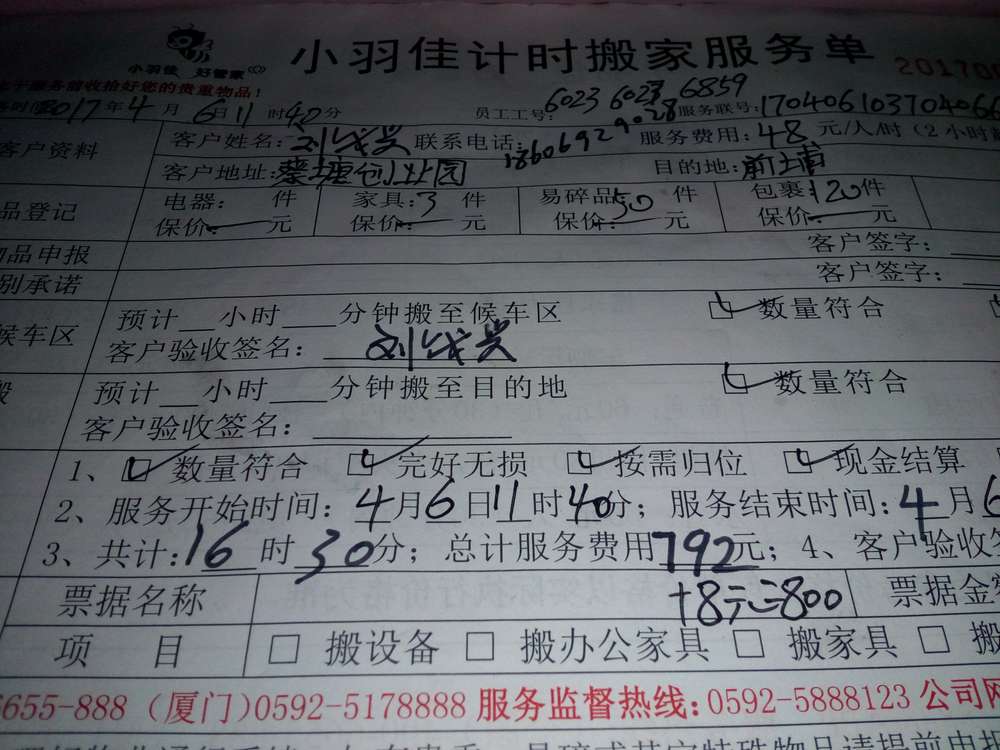 小羽佳 好管家
小羽佳计时搬家服务单
2017年4月6日11时40分 员工工号: 6023 6023 6859 服务联号:
客户资料 客户姓名: 联系电话:18606929028 服务费用:48元/人/时(2小时
客户地址: 目的地:前埔
品登记 电器: 件 家具:3件 易碎品:50件 包裹:120件
保价:—元 保价:—元 保价:—元 保价:—元
物品申报 客户签字:
别承诺 客户签字:
候车区 预计__小时___分钟搬至候车区 数量符合
客户验收签名:
搬 预计__小时___分钟搬至目的地 数量符合
客户验收签名:
1、数量符合 完好无损 按需归位 现金结算
2、服务开始时间:4月6日11时40分;服务结束时间:4月6
3、共计:16时30分;总计服务费用792元;4、客户验收签
票据名称 +8=800 票据金
项 目 □ 搬设备 □ 搬办公家具 □ 搬家具 □ 搬
6655-888(厦门)0592-5178888 服务监督热线:0592-5888123 公司网